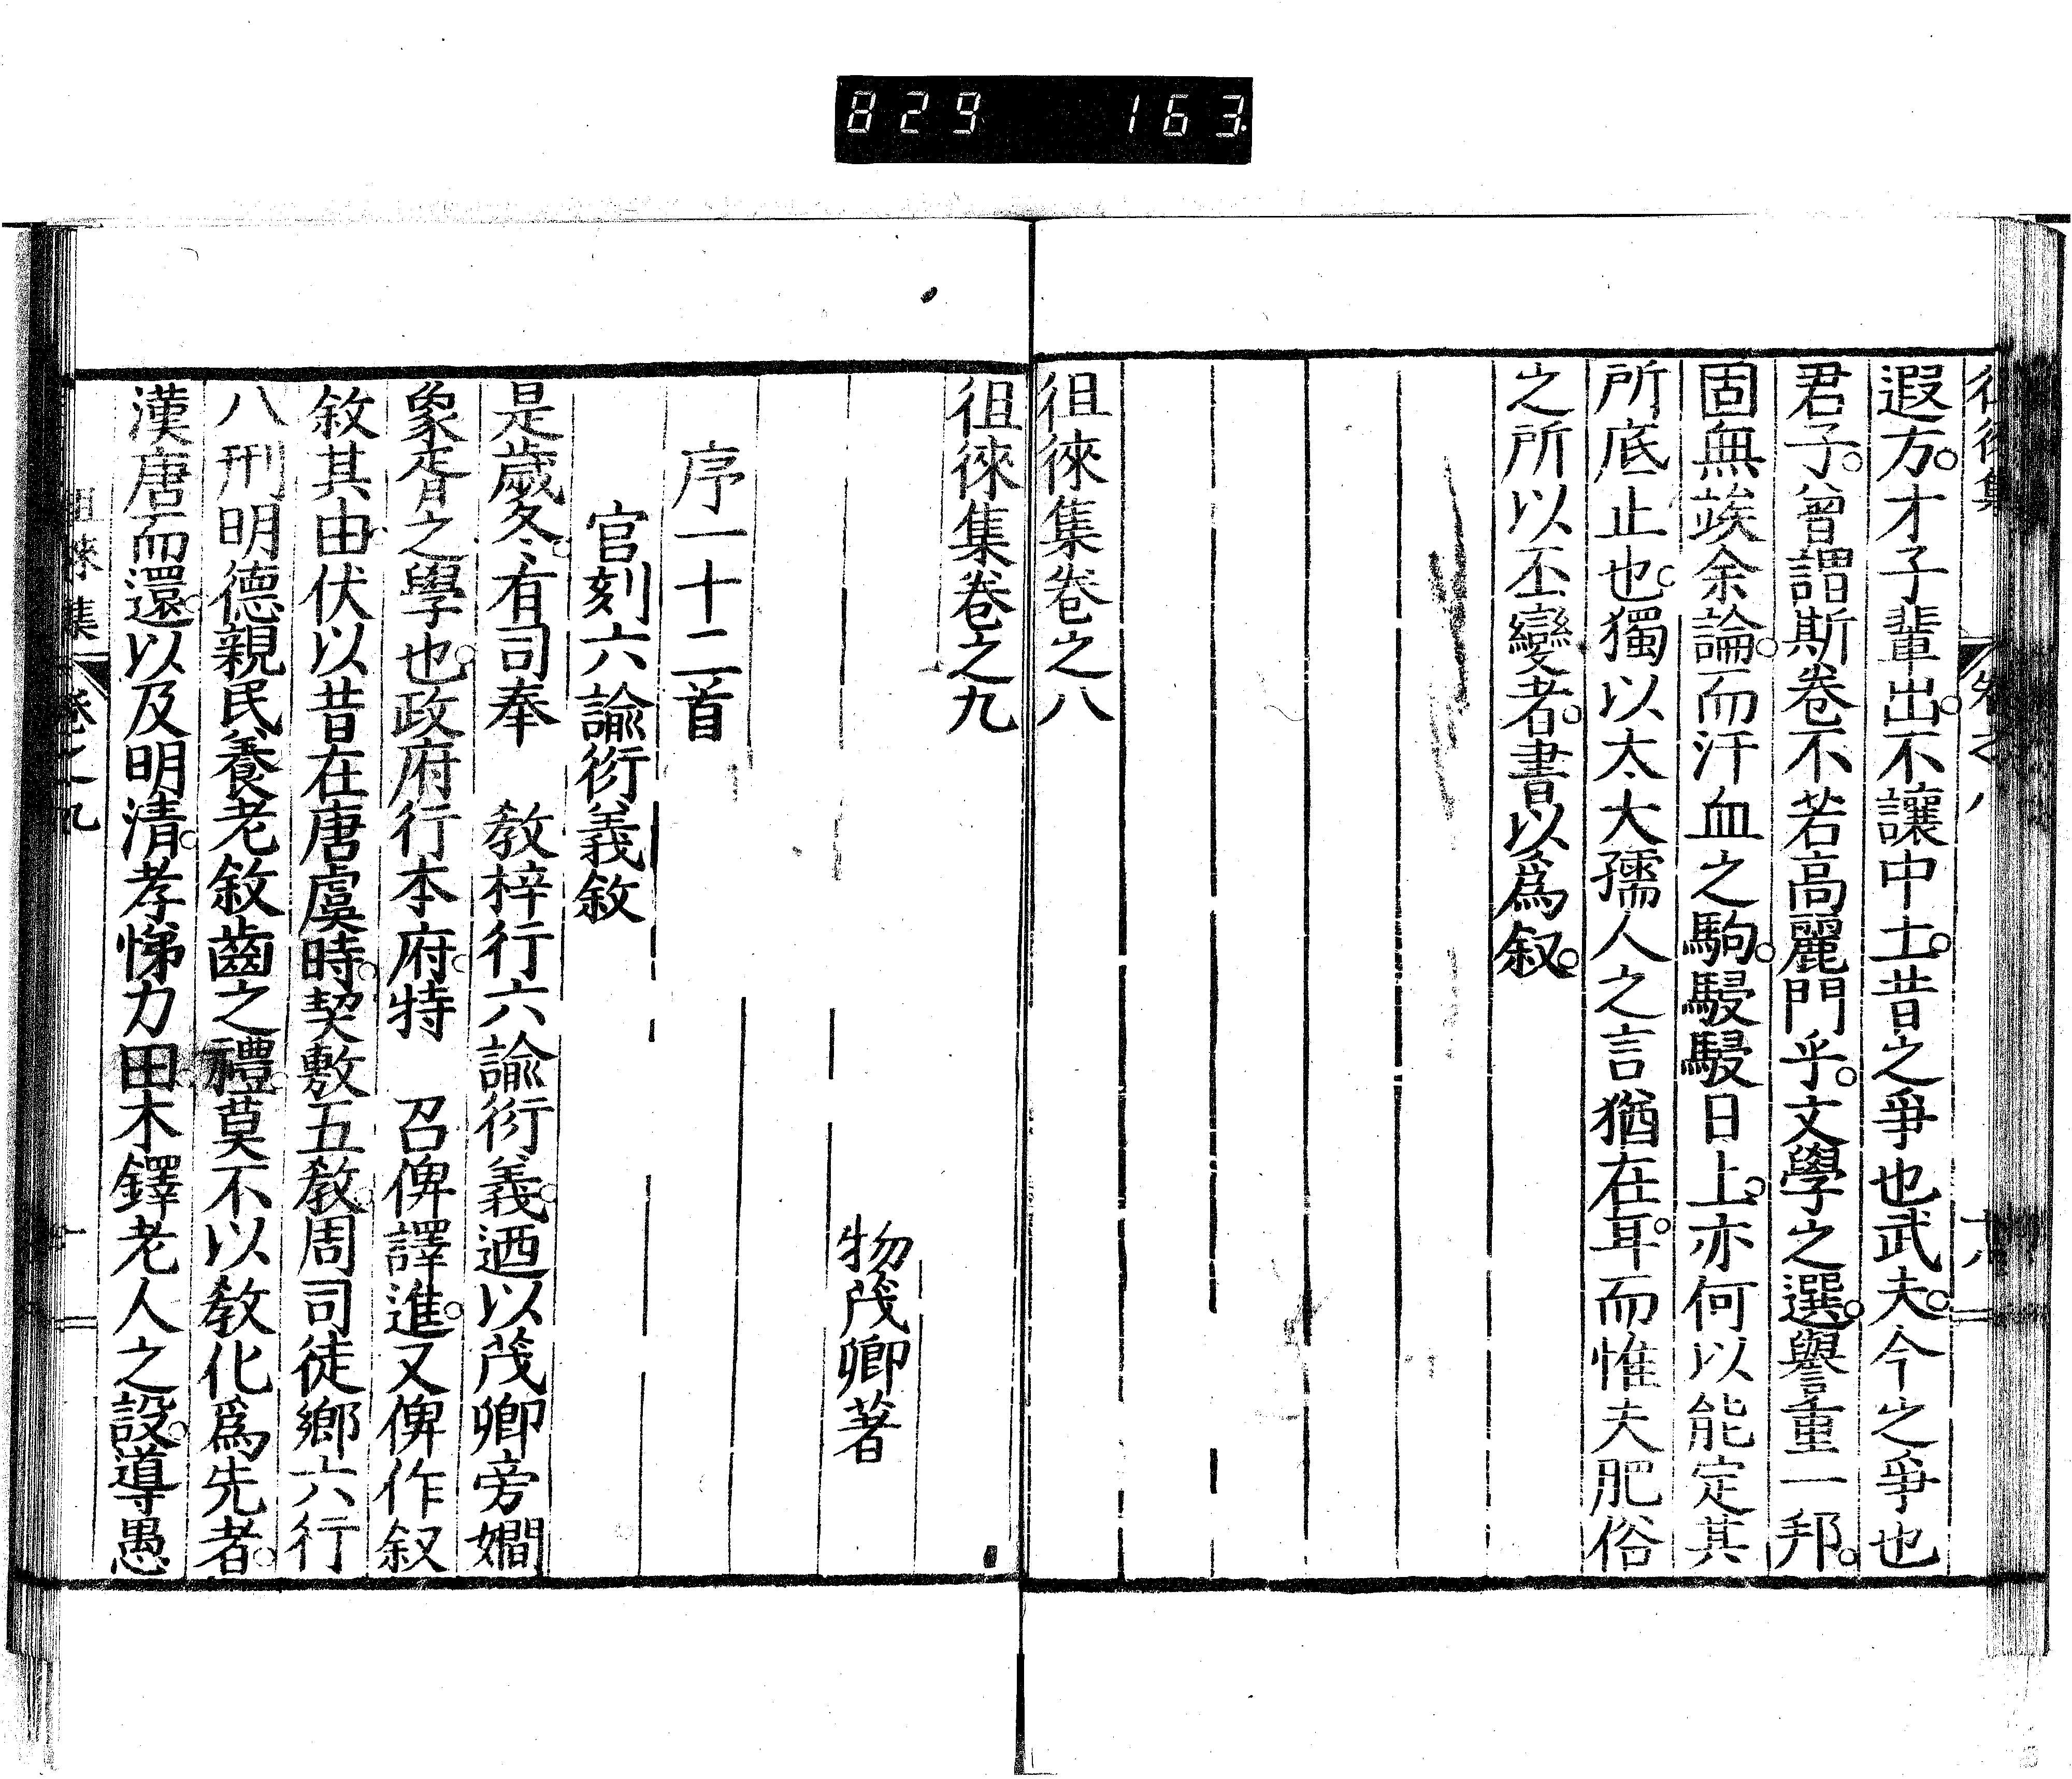 829 163
徂徠集 卷之八 十八
遐方。才子輩出。不讓中土。昔之爭也武夫。今之爭也
君子。曾謂斯卷不若高麗門乎。文學之選。譽重一邦。
固無竢余論。而汗血之駒。駸駸日上。亦何以能定其
所底止也。獨以太大孺人之言猶在耳。而惟夫肥俗
之所以丕變者。書以爲叙。
徂徠集卷之八
徂徠集卷之九
物茂卿著
序一十二首
官刻六諭衍義敘
是歲冬。有司奉 教梓行六諭衍義。迺以茂卿旁嫺
象胥之學也。政府行本府。特 召俾譯進。又俾作叙
敘其由。伏以昔在唐虞時。契敷五教。周司徒鄉六行
八刑明德親民養老敘齒之禮。莫不以教化爲先者。
漢唐而還。以及明清。孝悌力田。木鐸老人之設。導愚
徂徠集 卷之九 一